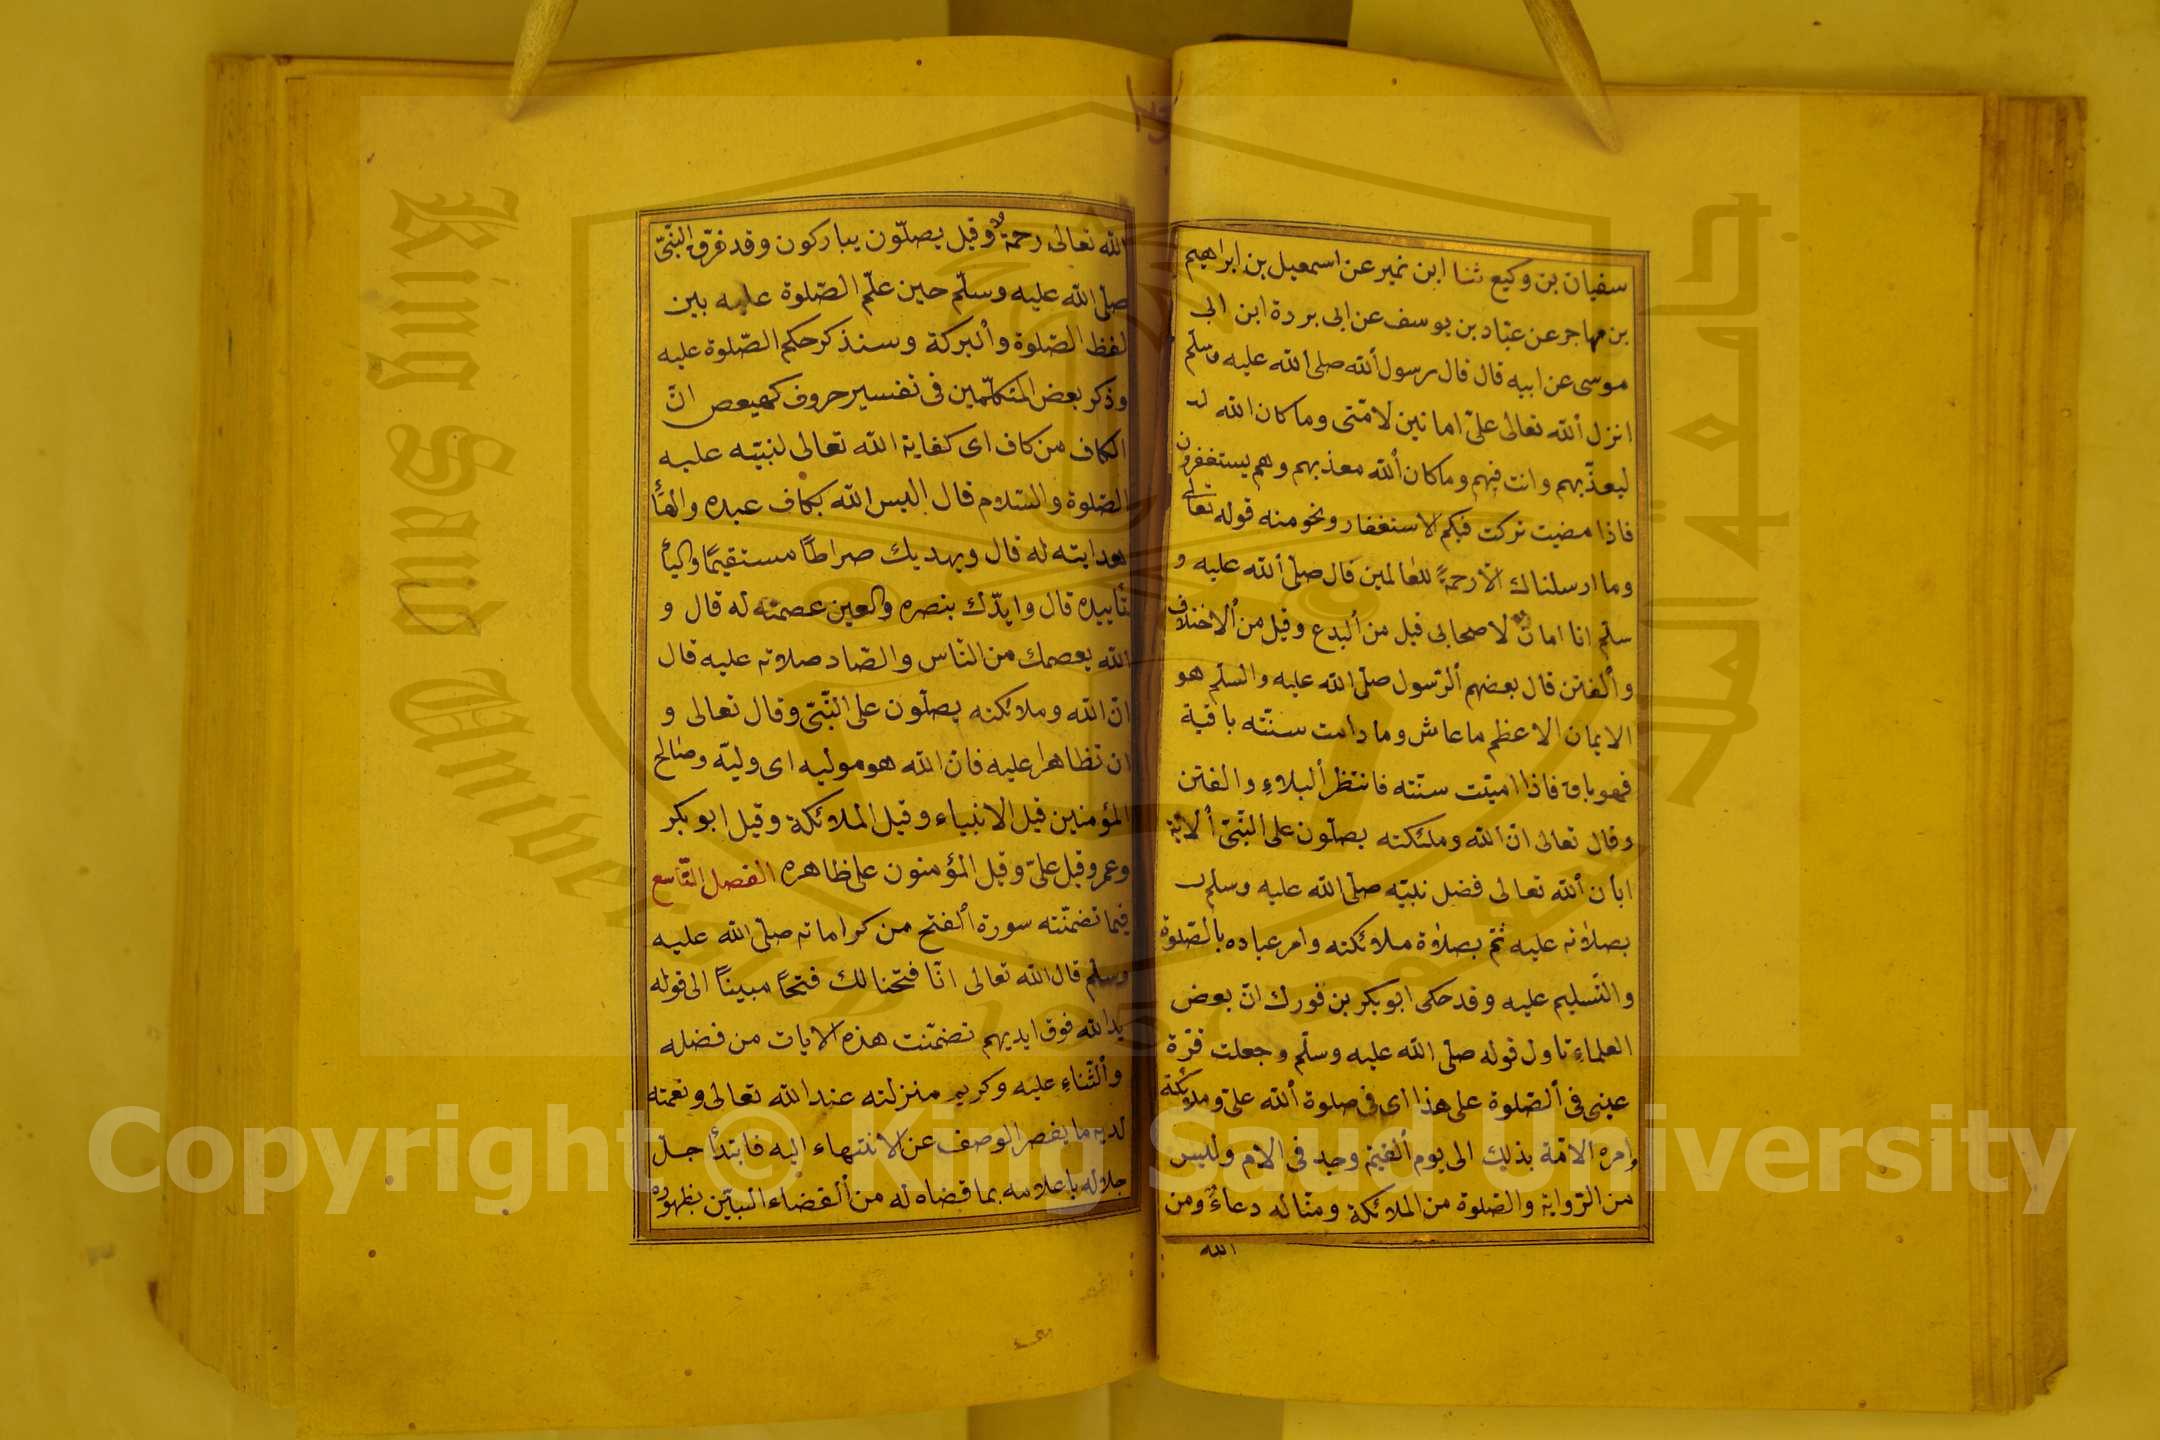 سفيان بن وكيع ثنا ابن نمير عن اسمعيل بن ابراهيم
بن مهاجر عن عباد بن يوسف عن ابى بردة ابن ابى
موسى عن ابيه قال قال رسول الله صلى الله عليه وسلم
انزل الله تعالى علىّ امانين لامتى وما كان الله
ليعذّبهم وانت فيهم وما كان الله معذبهم وهم يستغفرون
فاذا مضيت تركت فيكم الاستغفار ونحو منه قوله تعالى
وما ارسلناك الاّ رحمةً للعالمين قال صلى الله عليه و
سلم انا امان لاصحابى قيل من البدع وقيل من الاختلاف
والفتن قال بعضهم الرّسول صلّى الله عليه والسلم هو
الايمان الاعظم ما عاش وما دامت سنّته باقية
فهو باق فاذا اميتت سنّته فانتظر البلاءِ والفتن
وقال تعالى انّ الله وملئكته يصلّون على النّبىّ الاية
ابان الله تعالى فضل نبيّه صلّى الله عليه وسلم ب
بصلاته عليه ثمّ بصلاة ملائكته وامر عباده بالصّلوة
والتّسليم عليه وقد حكى ابو بكر بن فورك انّ بعض
العلماءِ تاول قوله صلّى الله عليه وسلّم وجعلت قرّة
عينى فى الصّلوة على هذا اى فى صلوة الله علىّ وملائكته
وامره الامّة بذلك الى يوم
من الرّواية والصّلوة من الملائكة ومنّا له دعاءٌ ومن
الله
الله تعالى رحمةٌ وقيل يصلّون يباركون وقد فرّق النّبىّ
صلّى الله عليه وسلّم حين علّم الصّلوة عليه بين
لفظ الصّلوة والبركة وسنذكر حكم الصّلوة عليه
وذكر بعض المتكلّمين فى تفسير حروف كهيعص انّ
الكاف من كاف اى كفاية الله تعالى لنبيّه عليه
الصّلوة والسّلام قال اليس الله بكاف عبده والهاء
هدايته له قال ويهديك صراطًا مستقيمًا والياء
تأييده قال وايدّك بنصره والعين عصمته له قال و
الله يعصمك من النّاس والصّاد صلاته عليه قال
انّ الله وملائكته يصلّون على النّبىّ وقال تعالى و
ان تظاهرا عليه فانّ الله هو موليه اى وليّه وصالح
المؤمنين قيل الانبياء وقيل الملائكة وقيل ابو بكر
وعمر وقيل علىّ وقيل المؤمنون على ظاهره الفصل التّاسع
فيما تضمّنته سورة الفتح من كراماته صلّى الله عليه
وسلم قال الله تعالى انّا فتحنا لك فتحًا مبينًا الى قوله
يد الله فوق ايديهم تضمّنت هذه الايات من فضله
والثّناءِ عليه وكريم منزلته عند الله تعالى ونعمته
لديه ما يقصر الوصف عن الانتهاء اليه فابتدأ جلّ
جلاله باعلامه بما قضاه له من القضاء البيّن بظهوره
King Saud University
جامعة الملك سعود
1957
Copyright © King Saud University